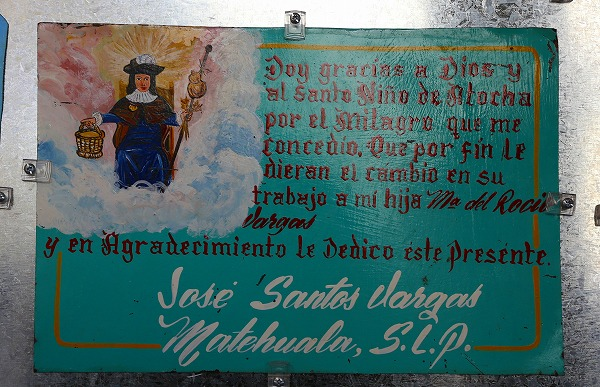 Doy gracias a Dios y
al Santo Niño de Atocha
por el Milagro que me
concedio, Que por fin le
dieran el cambio en su
trabajo a mi hija Ma del Rocio
Vargas
y en Agradecimiento le Dedico este Presente.
José Santos Vargas
Matehuala, S.L.P.